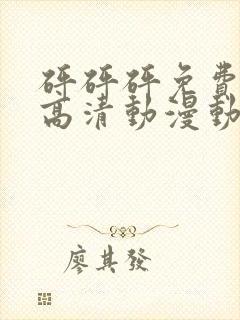 砰砰砰免費
高清動漫動
廖其發